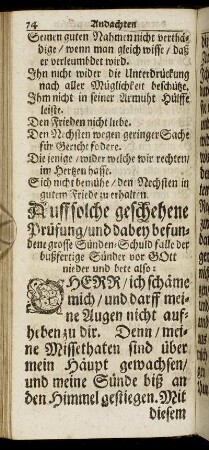 74 Andachten
Seinen guten Nahmen nicht verthä-
dige / wenn man gleich wisse / daß
er verleumbdet wird.
Ihn nicht wider die Unterdrückung
nach aller Mügligkeit beschütze.
Ihm nicht in seiner Armuht Hülffe
leiste.
Den Frieden nicht liebe.
Den Nechsten wegen geringer Sache
für Gericht fodere.
Die jenige / wider welche wir rechten /
im Hertzen hasse.
Sich nicht bemühe / den Nechsten in
gutem Friede zu erhalten.
Auff solche geschehene
Prüfung / und dabey befun-
dene grosse Sünden-Schuld falle der
bußfertige Sünder vor GOtt
nieder und bete also:
O HERR / ich schäme
mich / und darff mei-
ne Augen nicht auf-
heben zu dir. Denn / mei-
ne Missethaten sind über
mein Häupt gewachsen /
und meine Sünde biß an
den Himmel gestiegen. Mit
diesem